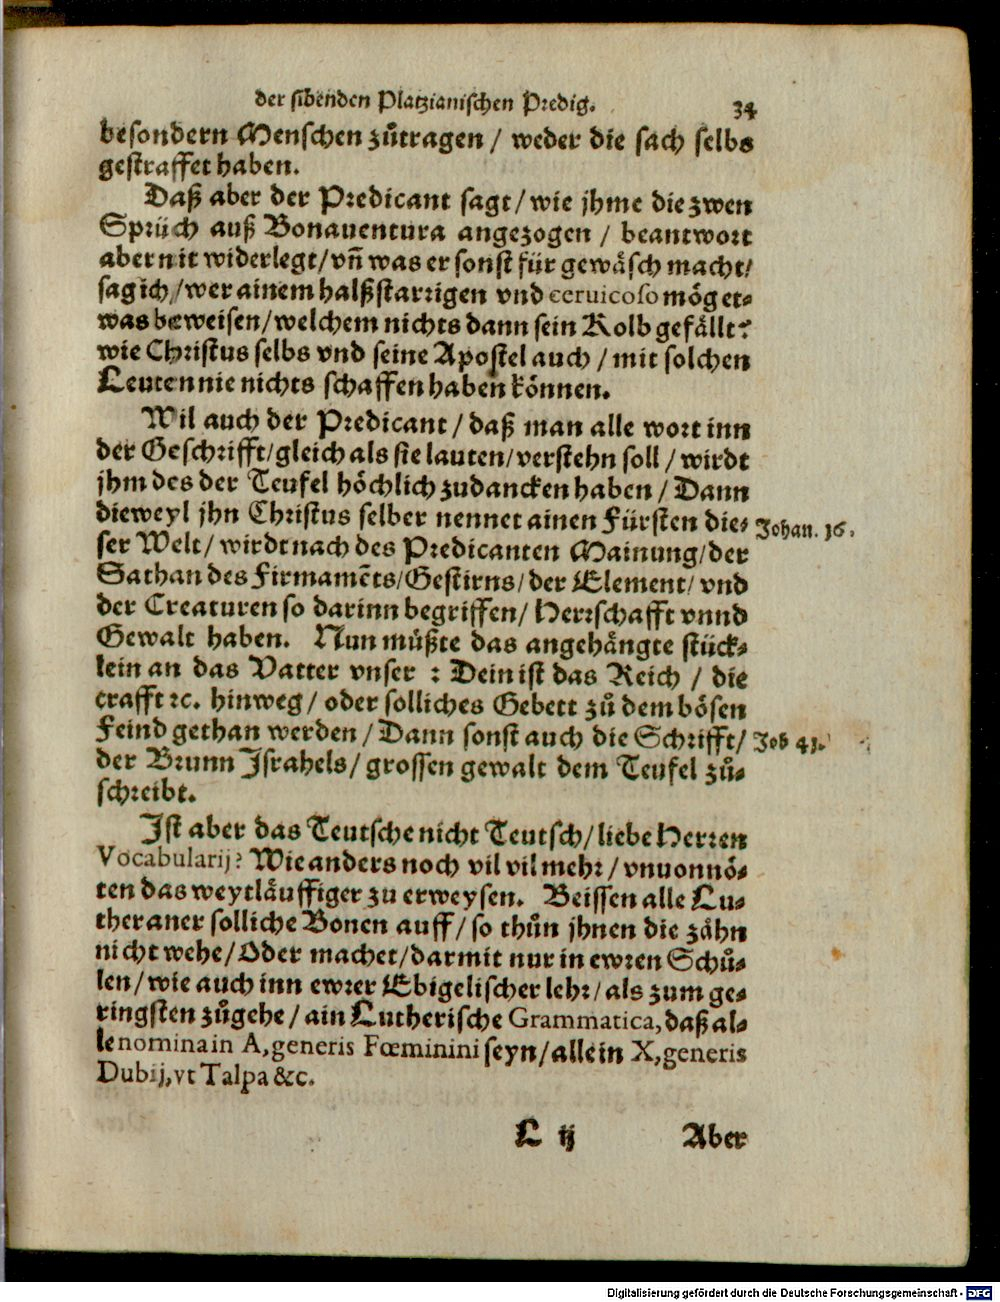 der sibenden Platzianischen Predig. 34
besondern Menschen zůtragen / weder die sach selbs
gestraffet haben.
Daß aber der Predicant sagt / wie jhme die zwen
Sprüch auß Bonauentura angezogen / beantwort
aber nit widerlegt / vñ was er sonst für gewäsch macht /
sag ich / wer ainem halßstarrigen vnd ceruicoso mög et⸗
was beweisen / welchem nichts dann sein Kolb gefällt?
wie Christus selbs vnd seine Apostel auch / mit solchen
Leuten nie nichts schaffen haben können.
Wil auch der Predicant / daß man alle wort inn
der Geschrifft / gleich als sie lauten / verstehn soll / wirdt
jhm des der Teufel höchlich zudancken haben / Dann
dieweyl jhn Christus selber nennet ainen Fürsten die⸗ Johan. 16.
ser Welt / wirdt nach des Predicanten Mainung / der
Sathan des Firmamēts / Gestirns / der Element / vnd
der Creaturen so darinn begriffen / Herrschafft vnnd
Gewalt haben. Nun müßte das angehängte stück⸗
lein an das Vatter vnser : Dein ist das Reich / die
crafft ꝛc. hinweg / oder solliches Gebett zů dem bösen
Feind gethan werden / Dann sonst auch die Schrifft / Job 41.
der Brunn Jsrahels / grossen gewalt dem Teufel zů⸗
schreibt.
Jst aber das Teutsche nicht Teutsch / liebe Herren
Vocabularij? Wie anders noch vil vil mehr / vnuonnö⸗
ten das weytläuffiger zu erweysen. Beissen alle Lu⸗
theraner solliche Bonen auff / so thůn jhnen die zähn
nicht wehe / Oder machet / darmit nur in ewren Schů⸗
len / wie auch inn ewrer Ebigelischer lehr / als zum ge⸗
ringsten zůgehe / ain Lutherische Grammatica, daß al⸗
le nomina in A, generis Fœminini seyn / allein X, generis
Dubij, vt Talpa &c.
L ij Aber
Digitalisierung gefördert durch die Deutsche Forschungsgemeinschaft - DFG